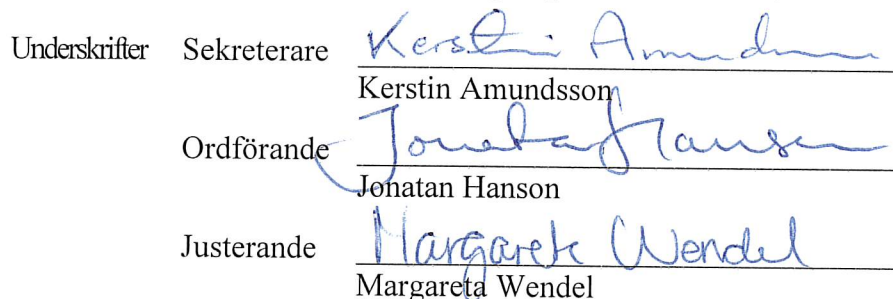 Underskrifter Sekreterare Kerstin Amundsson
Kerstin Amundsson
Ordförande Jonatan Hanson
Jonatan Hanson
Justerande Margareta Wendel
Margareta Wendel